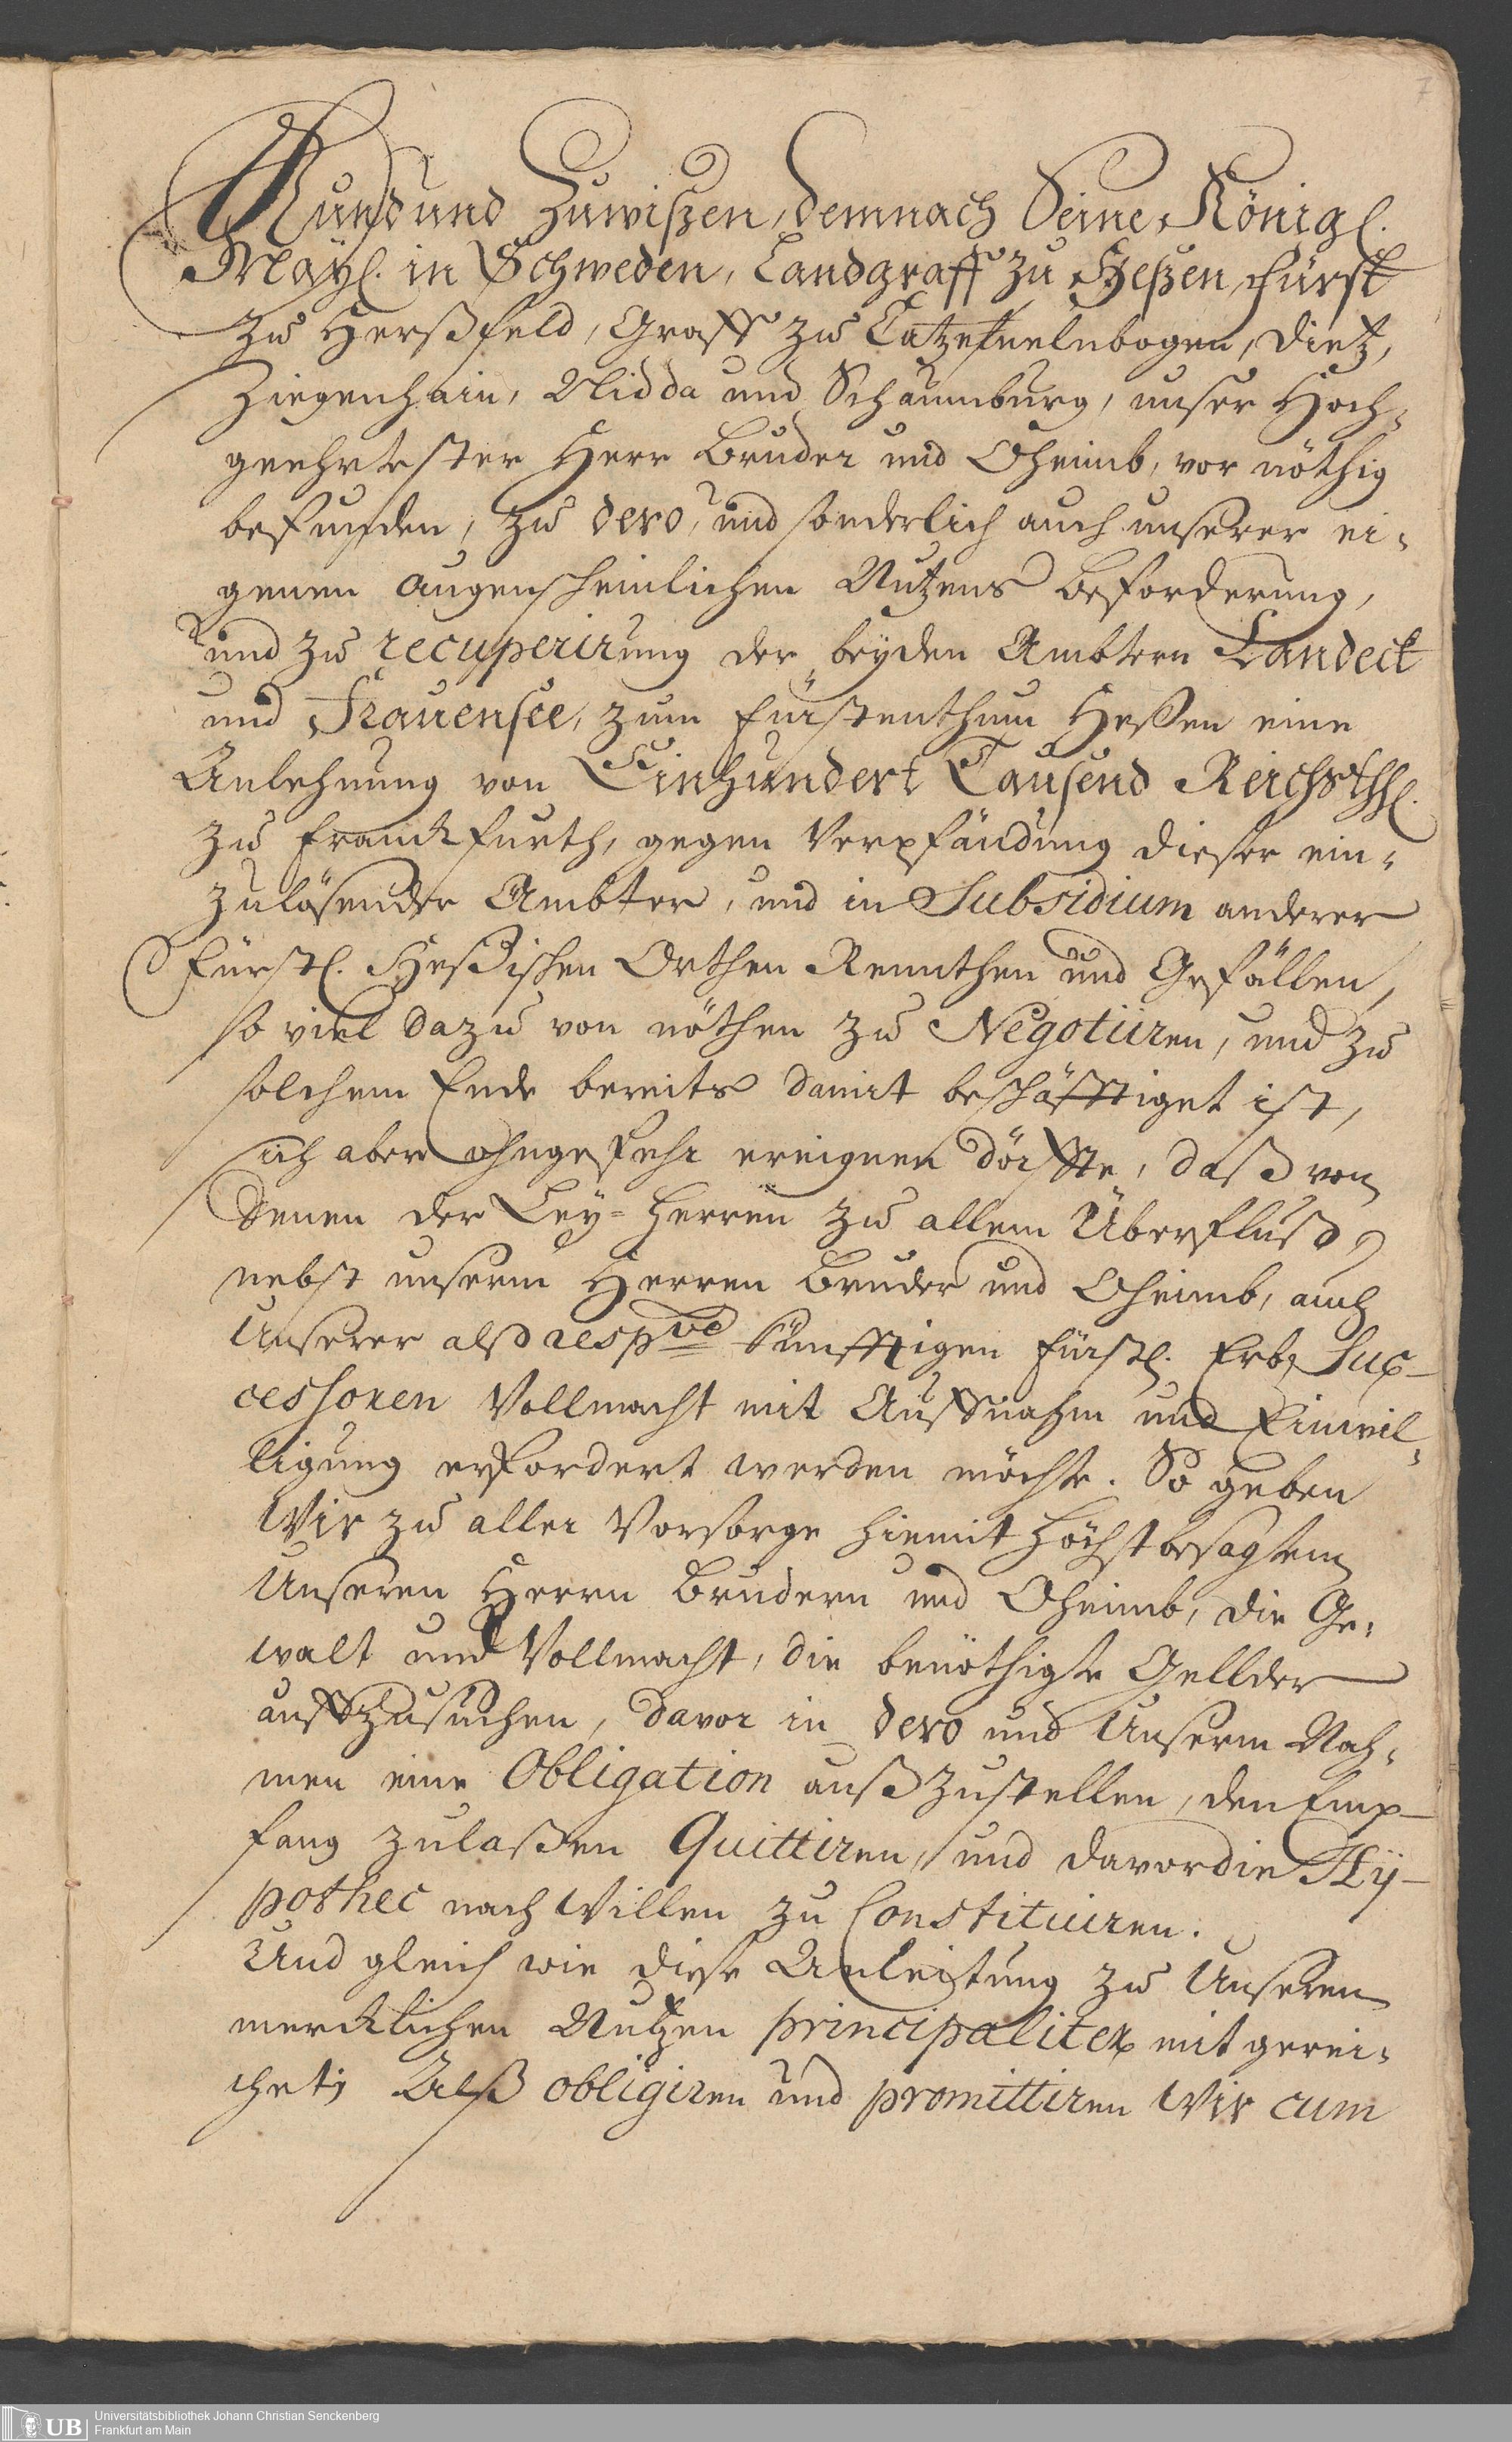 7
Kund und Zuwißen, demnach Seine Königl.
Mayl. in Schweden, Landgraff zu Heßen, Fürst
zu Herßfeld, Graff zu Catzenelnbogen, Dietz,
Ziegenhain, Nidda und Schaumburg, unser Hoch-
geehrtester Herr Bruder und Oheimb, vor nöthig
befunden, zu dero, und sonderlich auch unserer ei-
genen augenscheinlichen Nutzens Beforderung,
und zu recuperirung der beyden Ambtern Landeck
und Frauensee, zum Fürstenthum Hessen eine
Anlehnung von Einhundert Tausend Reichsthl.
zu Franckfurth, gegen Verpfändung dieser ein-
zulösender Ämbter, und in Subsidium anderer
Fürstl. Heßischen Orthen Rennthen und Gefällen,
so viel dazu von nöthen zu Negotiiren, und zu
solchem Ende bereits damit beschäfftiget ist,
sich aber ohngefehr ereignen dörffte, daß von
denen der Ley-Herren zu allem Überfluß,
nebst unserm Herren Bruder und Oheimb, auch
Unserer alß respve künfftigen Fürstl. Erb Suc-
cessoren Vollmacht mit Auffnahm und Einwil-
ligung erfordert werden möchte. So geben
Wir zu aller Vorsorge hiemit Höchstbesagtem
Unseren Herrn Brudern und Oheimb, die Ge-
walt und Vollmacht, die benöthigte Gellder
auffzusuchen, davor in dero und Unserm Nah-
men eine Obligation außzustellen, den Emp-
fang zulaßen Quittiren, und davor die Hy-
pothec nach Willen zu Constituiren.
Und gleich wie diese Anleistung zu Unseren
mercklichen Nutzen principaliter mit gerei-
chet; Alß obligiren und promittiren Wir cum
UB Universitätsbibliothek Johann Christian Senckenberg
Frankfurt am Main